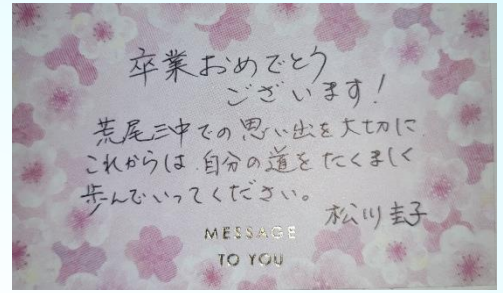 卒業おめでとう
ございます!
荒尾三中での思い出を大切に
これからは自分の道をたくましく
歩んでいってください。
松川圭子
MESSAGE
TO YOU